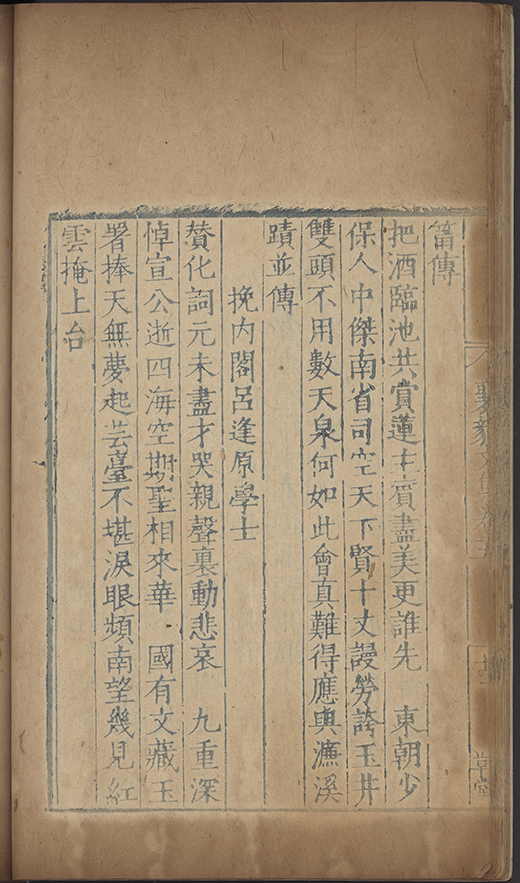 簹傳
把酒臨池共賞蓮主賓盡美更誰先 東朝少
保人中傑南省司空天下賢十丈謾勞誇玉井
雙頭不用數天泉何如此會真難得應與濂溪
蹟並傳
挽内閣呂逢原學士
賛化詞元未盡才哭親聲裏動悲哀 九重深
悼宣公逝四海空期聖相來華 國有文藏玉
署捧天無夢起芸臺不堪淚眼頻南望幾見紅
雲掩上台
襄毅文集卷五
草堂